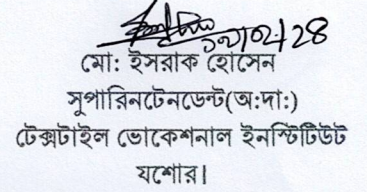 ১২/০২/২৪
মো: ইসরাক হোসেন
সুপারিনটেনডেন্ট(অ:দা:)
টেক্সটাইল ভোকেশনাল ইনস্টিটিউট
যশোর।